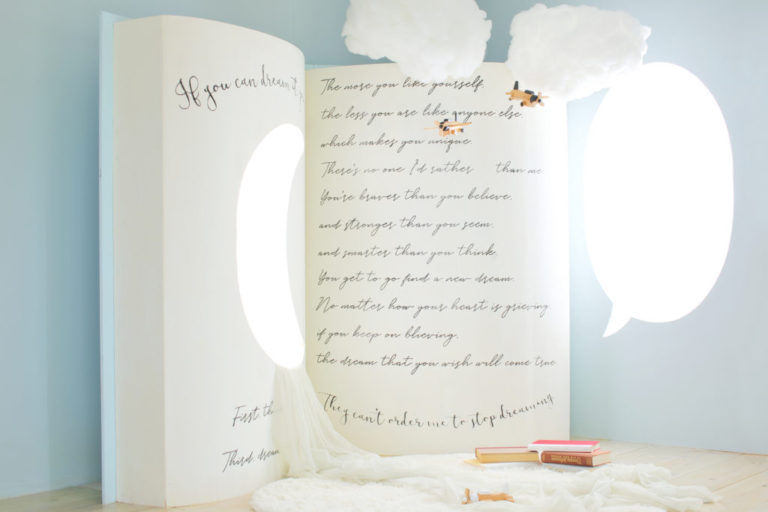 If you can dream it,
The more you like yourself,
the less you are like anyone else,
which makes you unique.
There's no one I'd rather than me
You're braver than you believe,
and stronger than you seem.
and smarter than you think.
You get to go find a new dream.
No matter how your heart is grieving
if you keep on blieving,
the dream that you wish will come true
They can't order me to stop dreaming
First
Third dream